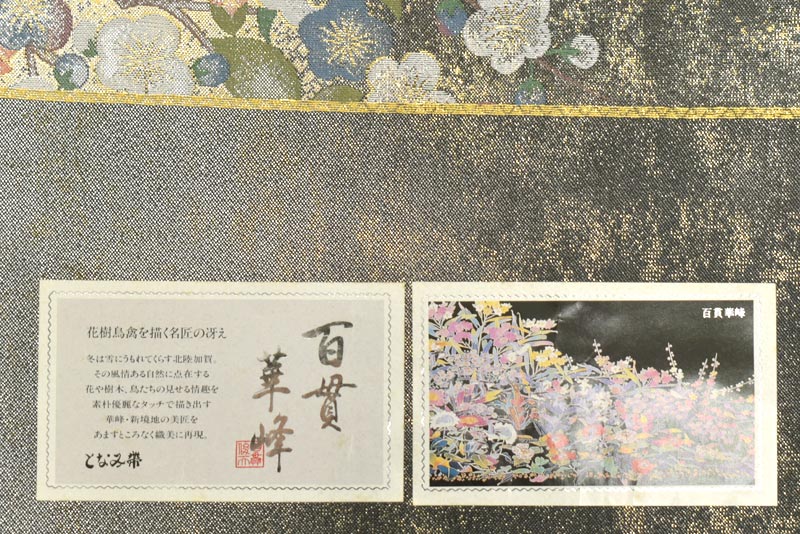 花樹鳥禽を描く名匠の冴え
冬は雪にうもれてくらす北陸加賀。
その風情ある自然に点在する
花や樹木、鳥たちの見せる情趣を
素朴優麗なタッチで描き出す
華峰・新境地の美匠を
あますところなく織美に再現。
となみ帯
百貫
華峰
百貫華峰